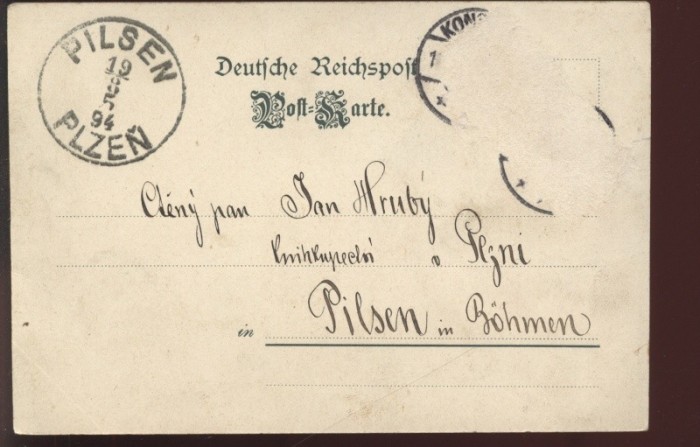 PILSEN
19
94
PLZEŇ
Deutsche Reichspost
Post-Karte.
KONS
1
Ctěný pan Jan Hrubý
knihkupectví v Plzni
in Pilsen in Böhmen